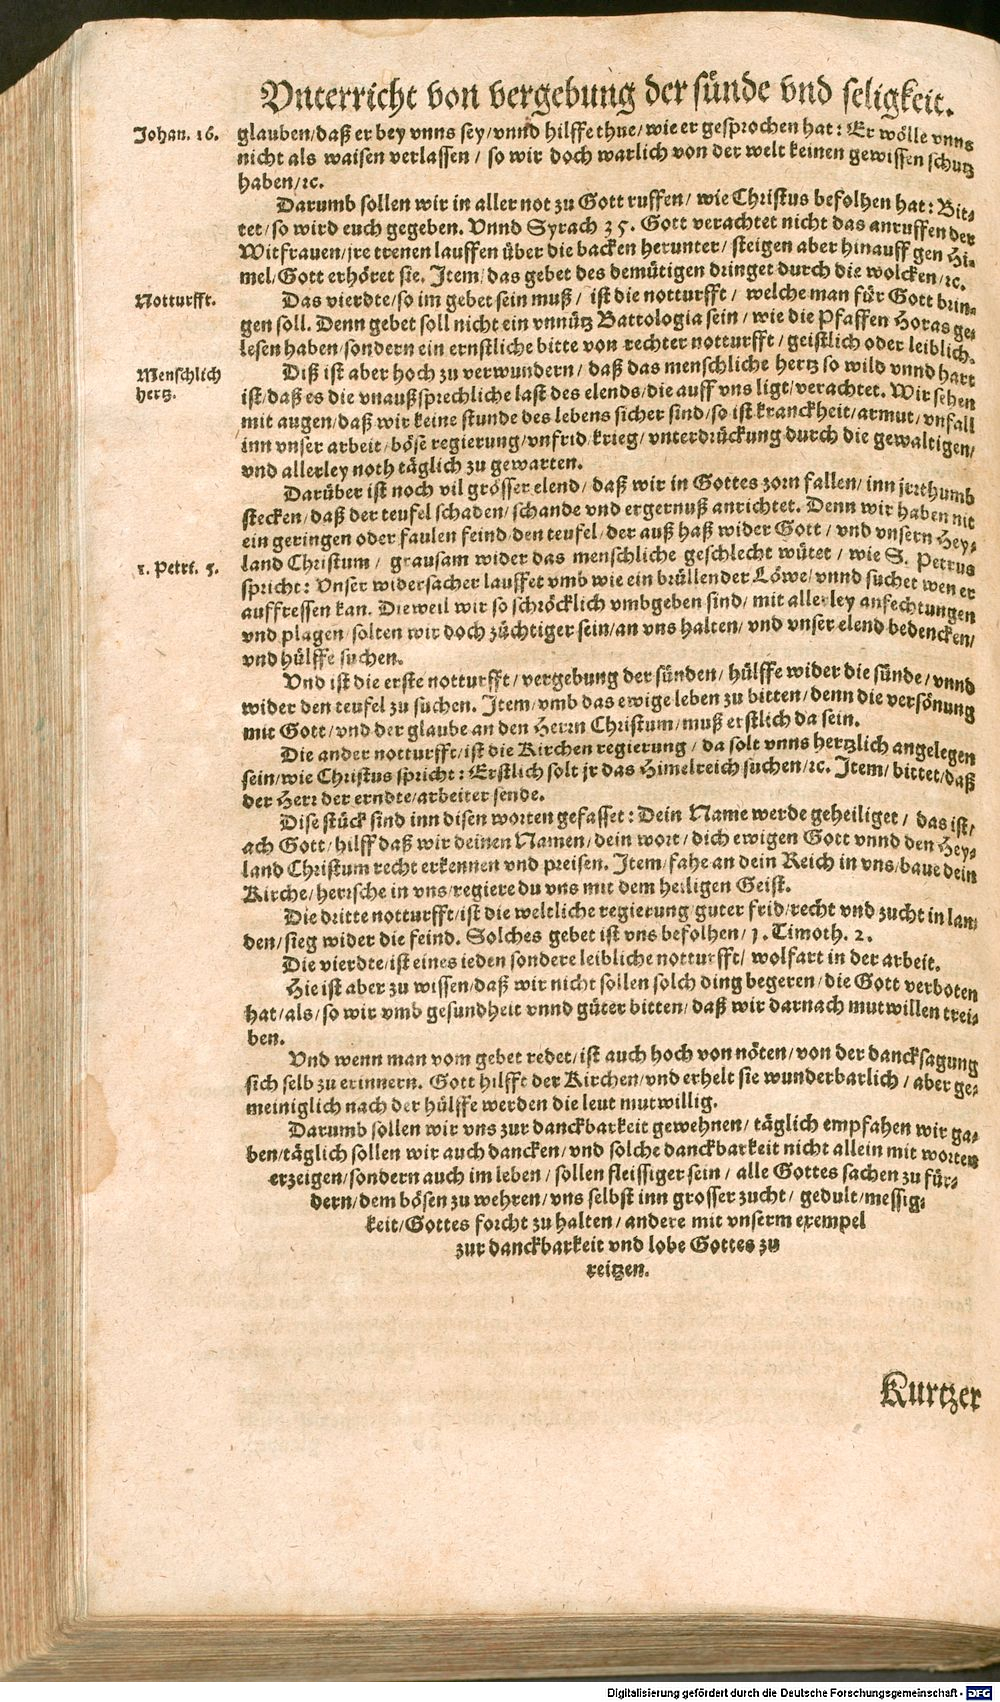 Vnterricht von vergebung der sünde vnd seligkeit.
Johan. 16.
glauben/daß er bey vnns sey/vnnd hilffe thue/wie er gesprochen hat: Er wölle vnns
nicht als waisen verlassen/ so wir doch warlich von der welt keinen gewissen schutz
haben/ꝛc.
Darumb sollen wir in aller not zu Gott ruffen/ wie Christus befolhen hat: Bit⸗
tet/so wird euch gegeben. Vnnd Syrach 35. Gott verachtet nicht das anruffen der
Witfrauen/jre trenen lauffen über die backen herunter/ steigen aber hinauff gen Hi⸗
mel/Gott erhöret sie. Item/das gebet des demütigen dringet durch die wolcken/ꝛc.
Notturfft.
Das vierdte/so im gebet sein muß/ ist die notturfft/ welche man für Gott brin⸗
gen soll. Denn gebet soll nicht ein vnnütz Battologia sein/ wie die Pfaffen Horas ge⸗
lesen haben/sondern ein ernstliche bitte von rechter notturfft/ geistlich oder leiblich.
Menschlich
hertz.
Diß ist aber hoch zu verwundern/ daß das menschliche hertz so wild vnnd hart
ist/daß es die vnaußsprechliche last des elends/die auff vns ligt/verachtet. Wir sehen
mit augen/daß wir keine stunde des lebens sicher sind/so ist kranckheit/armut/vnfall
inn vnser arbeit/böse regierung/vnfrid/krieg/vnterdrückung durch die gewaltigen/
vnd allerley noth täglich zu gewarten.
Darüber ist noch vil grösser elend/ daß wir in Gottes zorn fallen/ inn jrrthumb
stecken/daß der teufel schaden/schande vnd ergernuß anrichtet. Denn wir haben nit
ein geringen oder faulen feind/den teufel/der auß haß wider Gott/ vnd vnsern Hey⸗
land Christum/ grausam wider das menschliche geschlecht wütet/ wie S. Petrus
1. Petri. 5.
spricht: Vnser widersacher lauffet vmb wie ein brüllender Löwe/vnnd suchet wen er
auffressen kan. Dieweil wir so schröcklich vmbgeben sind/ mit allerley anfechtungen
vnd plagen/solten wir doch züchtiger sein/an vns halten/ vnd vnser elend bedencken/
vnd hülffe suchen.
Vnd ist die erste notturfft/vergebung der sünden/ hülffe wider die sünde/vnnd
wider den teufel zu suchen. Item/vmb das ewige leben zu bitten/denn die versönung
mit Gott/vnd der glaube an den Herrn Christum/muß erstlich da sein.
Die ander notturfft/ist die Kirchen regierung/ da solt vnns hertzlich angelegen
sein/wie Christus spricht: Erstlich solt jr das Himelreich suchen/ꝛc. Item/bittet/daß
der Herr der erndte/arbeiter sende.
Dise stück sind inn disen worten gefasset: Dein Name werde geheiliget/ das ist/
ach Gott/hilff daß wir deinen Namen/dein wort/dich ewigen Gott vnnd den Hey⸗
land Christum recht erkennen vnd preisen. Item/fahe an dein Reich in vns/baue dein
Kirche/herrsche in vns/regiere du vns mit dem heiligen Geist.
Die dritte notturfft/ist die weltliche regierung/guter frid/recht vnd zucht in lan⸗
den/sieg wider die feind. Solches gebet ist vns befolhen/1. Timoth. 2.
Die vierdte/ist eines ieden sondere leibliche notturfft/ wolfart in der arbeit.
Hie ist aber zu wissen/daß wir nicht sollen solch ding begeren/die Gott verboten
hat/als/so wir vmb gesundheit vnnd güter bitten/daß wir darnach mutwillen trei⸗
ben.
Vnd wenn man vom gebet redet/ist auch hoch von nöten/von der dancksagung
sich selb zu erinnern. Gott hilfft der Kirchen/vnd erhelt sie wunderbarlich/ aber ge⸗
meiniglich nach der hülffe werden die leut mutwillig.
Darumb sollen wir vns zur danckbarkeit gewehnen/ täglich empfahen wir ga⸗
ben/täglich sollen wir auch dancken/vnd solche danckbarkeit nicht allein mit worten
erzeigen/sondern auch im leben/ sollen fleissiger sein/ alle Gottes sachen zu für⸗
dern/dem bösen zu wehren/vns selbst inn grosser zucht/ gedult/messig⸗
keit/Gottes forcht zu halten/ andere mit vnserm exempel
zur danckbarkeit vnd lobe Gottes zu
reitzen.
Kurtzer
Digitalisierung gefördert durch die Deutsche Forschungsgemeinschaft - DFG